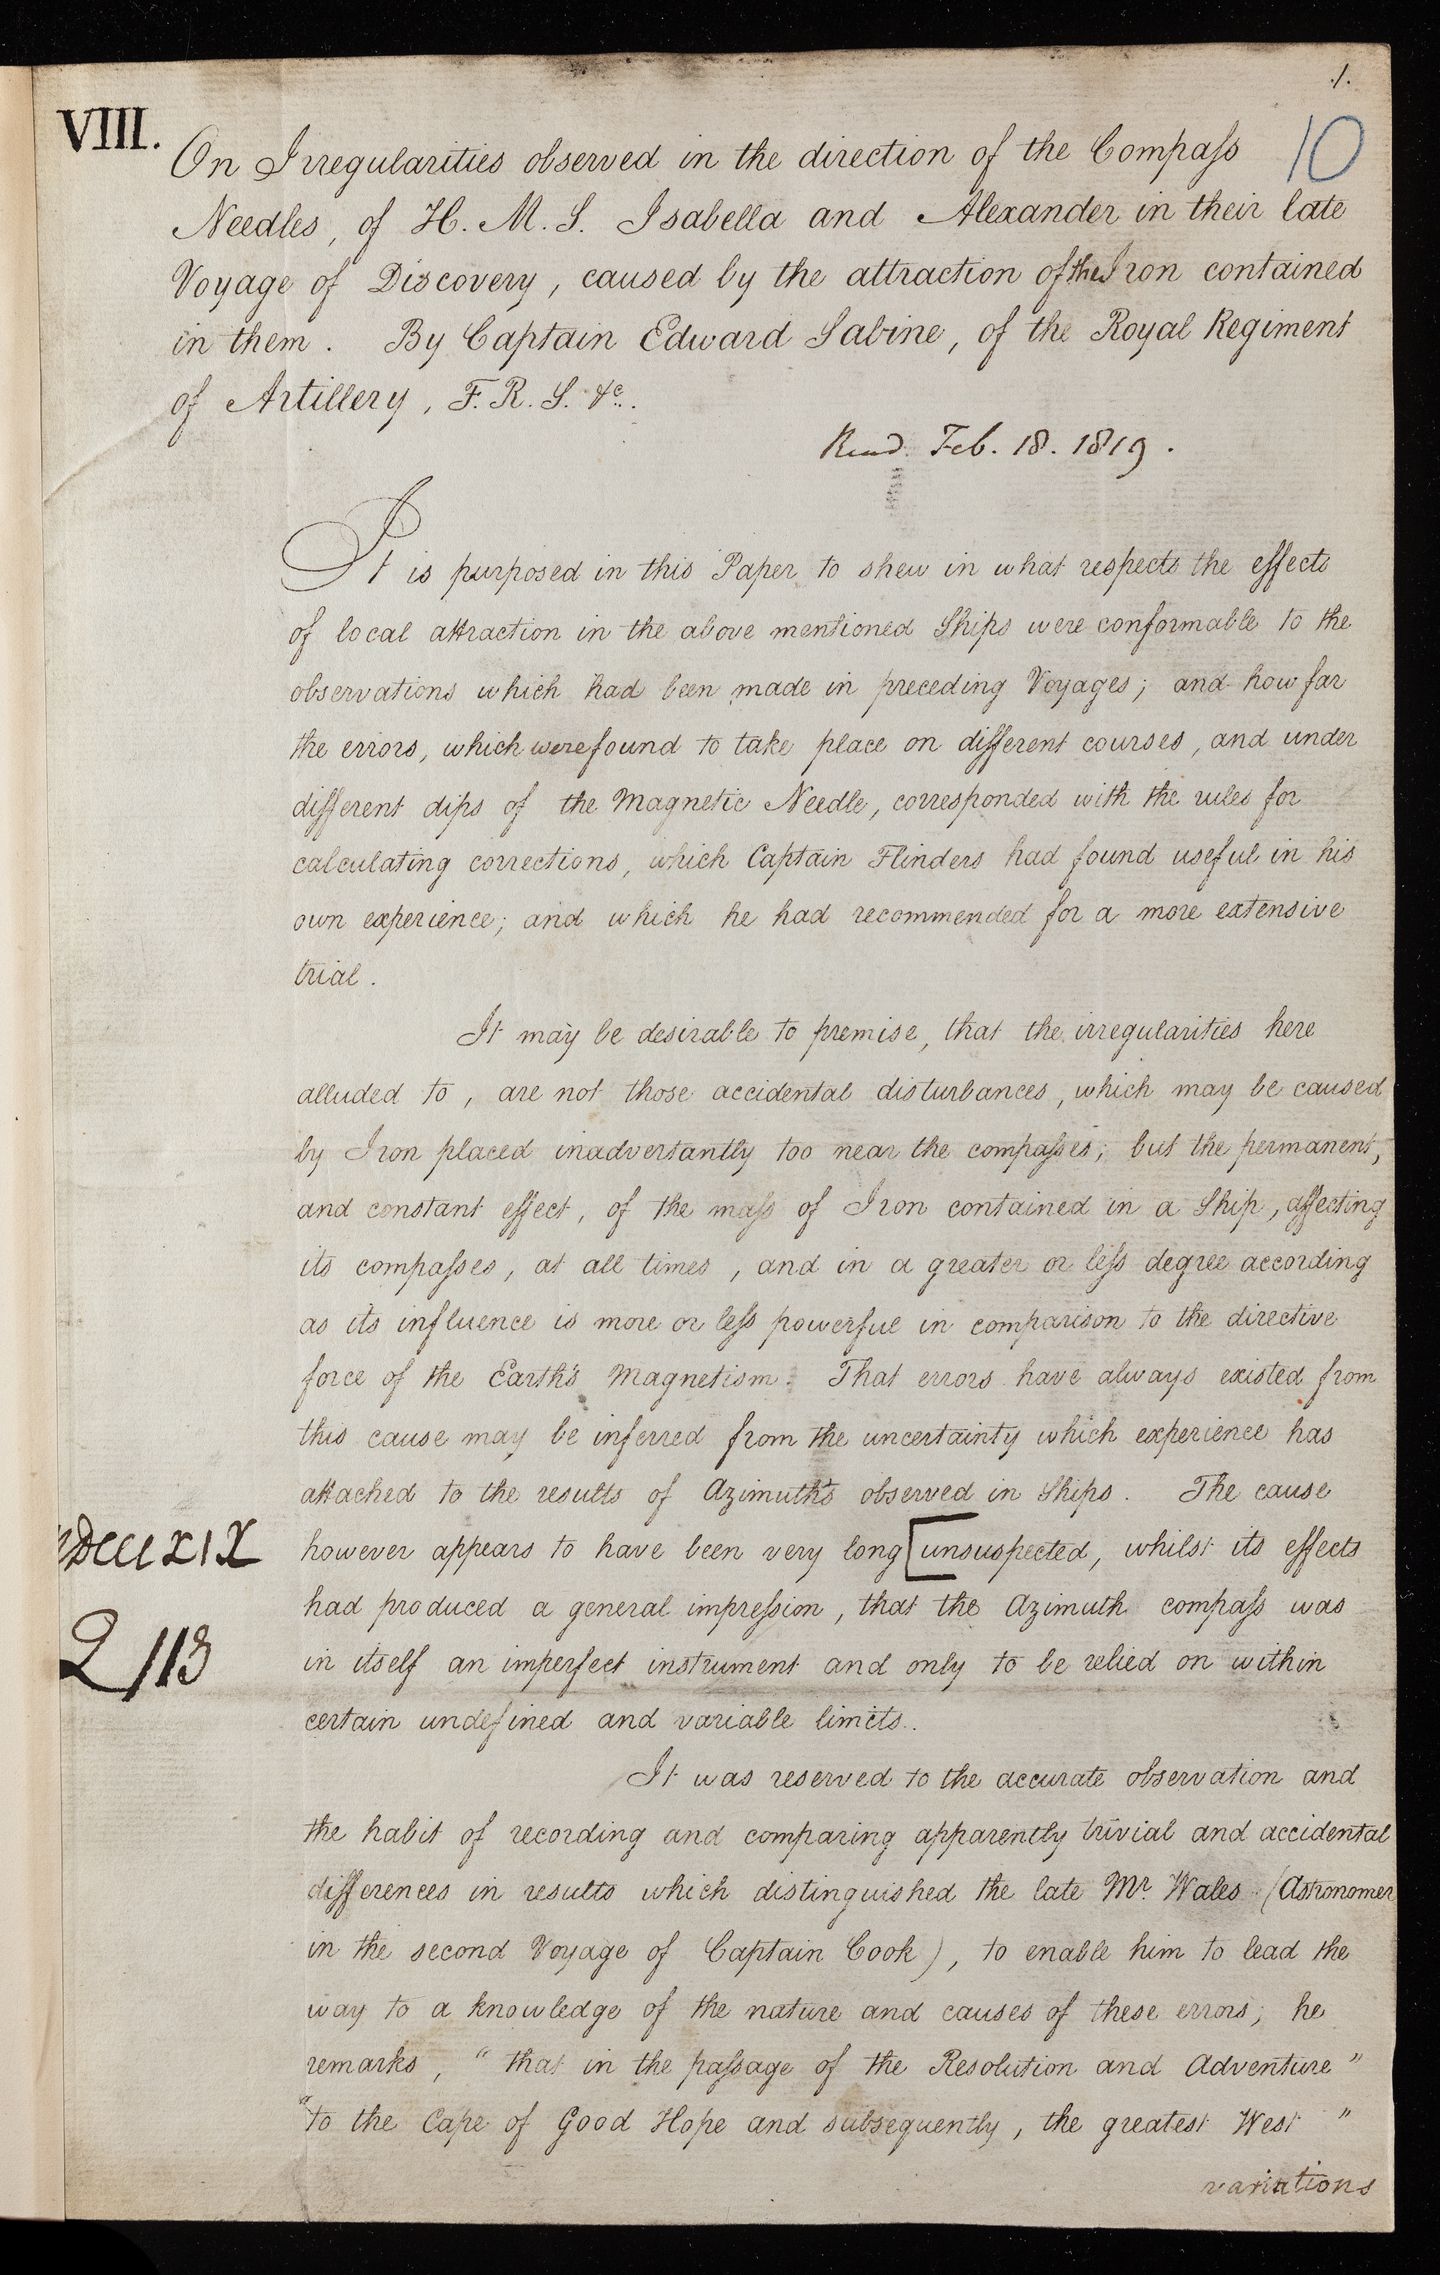 1.
VIII.
10
On Irregularities observed in the direction of the Compass
Needles, of H. M. S. Isabella and Alexander in their late
Voyage of Discovery, caused by the attraction of the Iron contained
in them. By Captain Edward Sabine, of the Royal Regiment
of Artillery, F. R. S. &c.
Read Feb. 18. 1819.
It is purposed in this Paper to shew in what respects the effects
of local attraction in the above mentioned Ships were conformable to the
observations which had been made in preceding Voyages; and how far
the errors, which were found to take place on different courses, and under
different dips of the Magnetic Needle, corresponded with the rules for
calculating corrections, which Captain Flinders had found useful in his
own experience; and which he had recommended for a more extensive
trial.
It may be desirable to premise, that the irregularities here
alluded to, are not those accidental disturbances, which may be caused
by Iron placed inadvertantly too near the compasses; but the permanent,
and constant effect, of the mass of Iron contained in a Ship, affecting
its compasses, at all times, and in a greater or less degree according
as its influence is more or less powerful in comparison to the directive
force of the Earth's Magnetism. That errors have always existed from
this cause may be inferred from the uncertainty which experience has
attached to the results of Azimuths observed in Ships. The cause
however appears to have been very long [unsuspected, whilst its effects
MDCCCXIX
had produced a general impression, that the Azimuth compass was
2 113
in itself an imperfect instrument and only to be relied on within
certain undefined and variable limits.
It was reserved to the accurate observation and
the habit of recording and comparing apparently trivial and accidental
differences in results which distinguished the late Mr. Wales (Astronomer
in the second Voyage of Captain Cook), to enable him to lead the
way to a knowledge of the nature and causes of these errors; he
remarks, "that in the passage of the Resolution and Adventure"
"to the Cape of Good Hope and subsequently, the greatest West"
variations